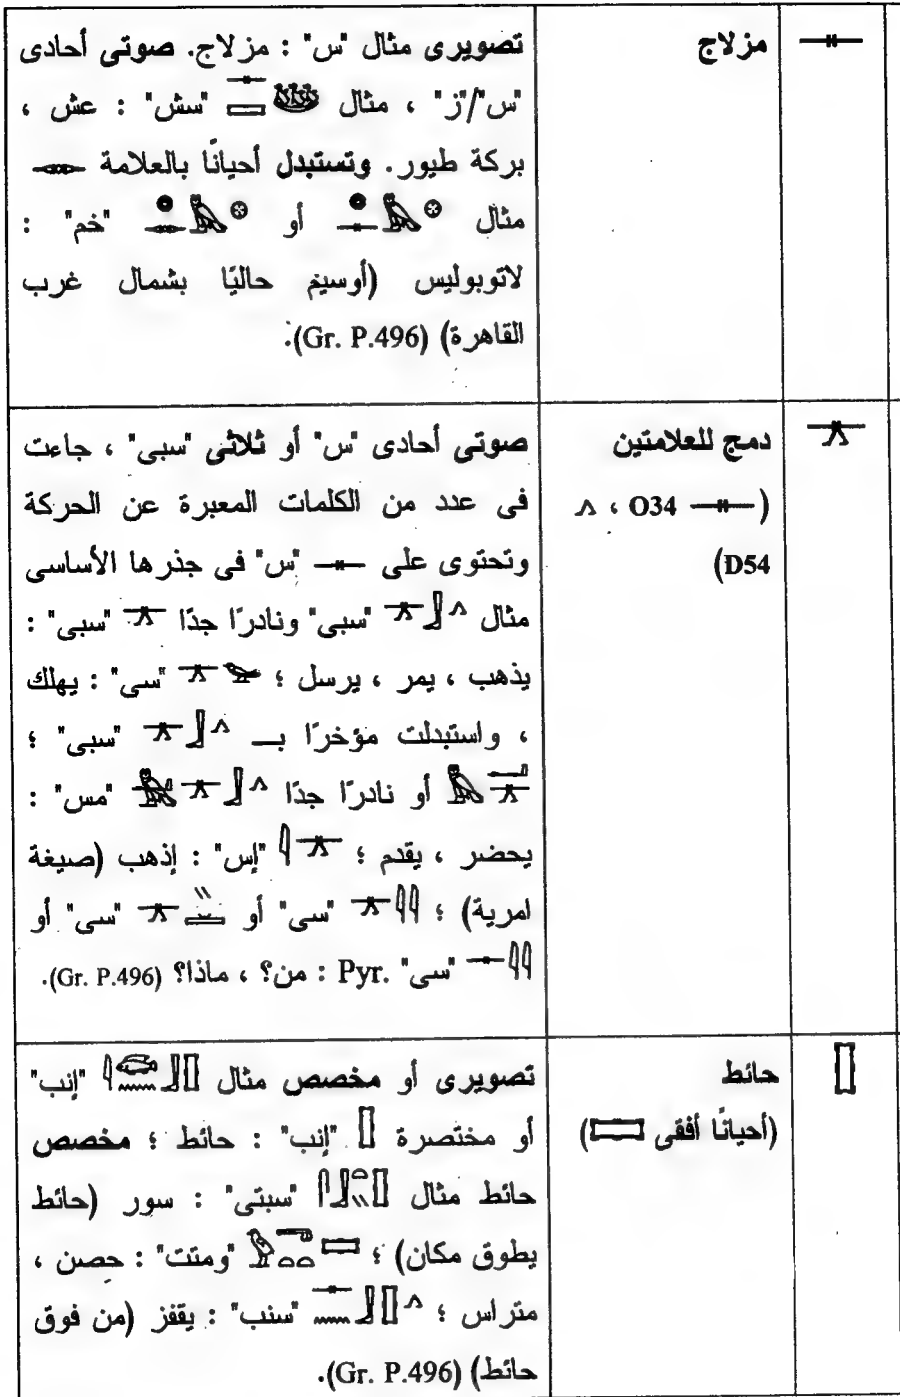 𓊃
مزلاج
تصويرى مثال "س" : مزلاج. صوتى أحادى
"س"/"ز" ، مثال "سش" : عش ،
بركة طيور. وتستبدل أحيانًا بالعلامة
مثال أو "خم" :
لاتوبوليس (أوسيم حاليًا بشمال غرب
القاهرة) (Gr. P.496).
𓊄
دمج للعلامتين
(𓊃 O34 ، 𓂻
D54)
صوتى أحادى "س" أو ثلاثى "سبى" ، جاءت
فى عدد من الكلمات المعبرة عن الحركة
وتحتوى على 𓊃 "س" فى جذرها الأساسى
مثال 𓊄𓃀𓂻 "سبى" ونادرًا جدًا 𓊄 "سبى" :
يذهب ، يمر ، يرسل ؛ 𓊄𓅪 "سى" : يهلك
، واستبدلت مؤخرًا بــ 𓊄𓃀𓂻 "سبى" ؛
أو نادرًا جدًا "مس" :
يحضر ، يقدم ؛ 𓇋𓊄 "إس" : إذهب (صيغة
امرية) ؛ 𓊄𓇋𓇋 "سى" أو "سى" أو
𓊃𓇋𓇋 "سى" Pyr. : من؟ ، ماذا؟ (Gr. P.496).
𓊅
حائط
(أحيانًا أفقى)
تصويرى أو مخصص مثال "إنب"
أو مختصرة 𓊅 "إنب" : حائط ؛ مخصص
حائط مثال "سبتى" : سور (حائط
يطوق مكان) ؛ "ومتت" : حصن ،
متراس ؛ "سنب" : يقفز (من فوق
حائط) (Gr. P.496).